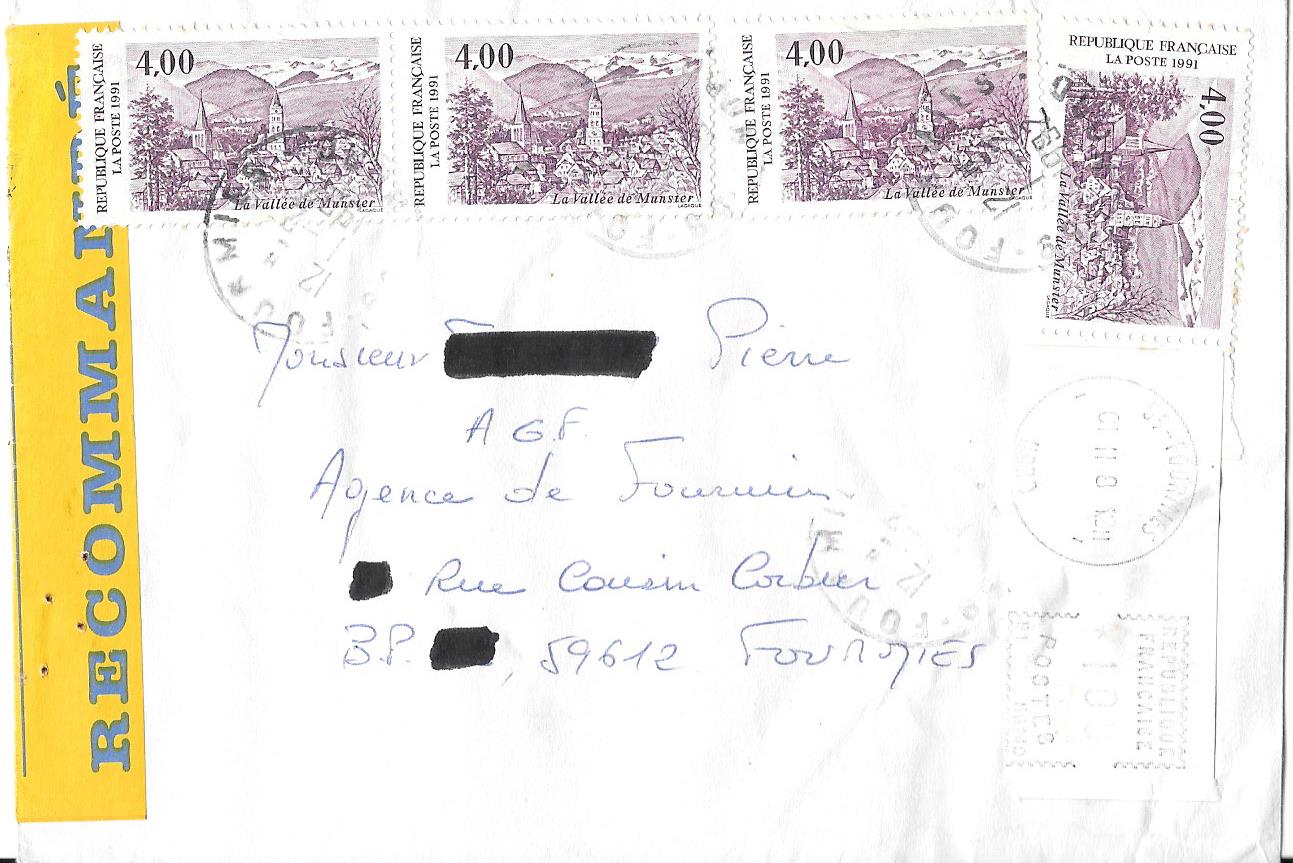 RECOMMANDÉ
REPUBLIQUE FRANÇAISE
LA POSTE 1991
4,00
La Vallée de Munster
LACAQUE
REPUBLIQUE FRANÇAISE
LA POSTE 1991
4,00
La Vallée de Munster
LACAQUE
REPUBLIQUE FRANÇAISE
LA POSTE 1991
4,00
La Vallée de Munster
LACAQUE
REPUBLIQUE FRANÇAISE
LA POSTE 1991
4,00
La Vallée de Munster
Monsieur Pierre
A G.F.
Agence de Fourmies
Rue Cousin Corbier
B.P. , 59612 FOURMIES
59-FOURMIES
NORD
REPUBLIQUE
FRANCAISE
POSTES